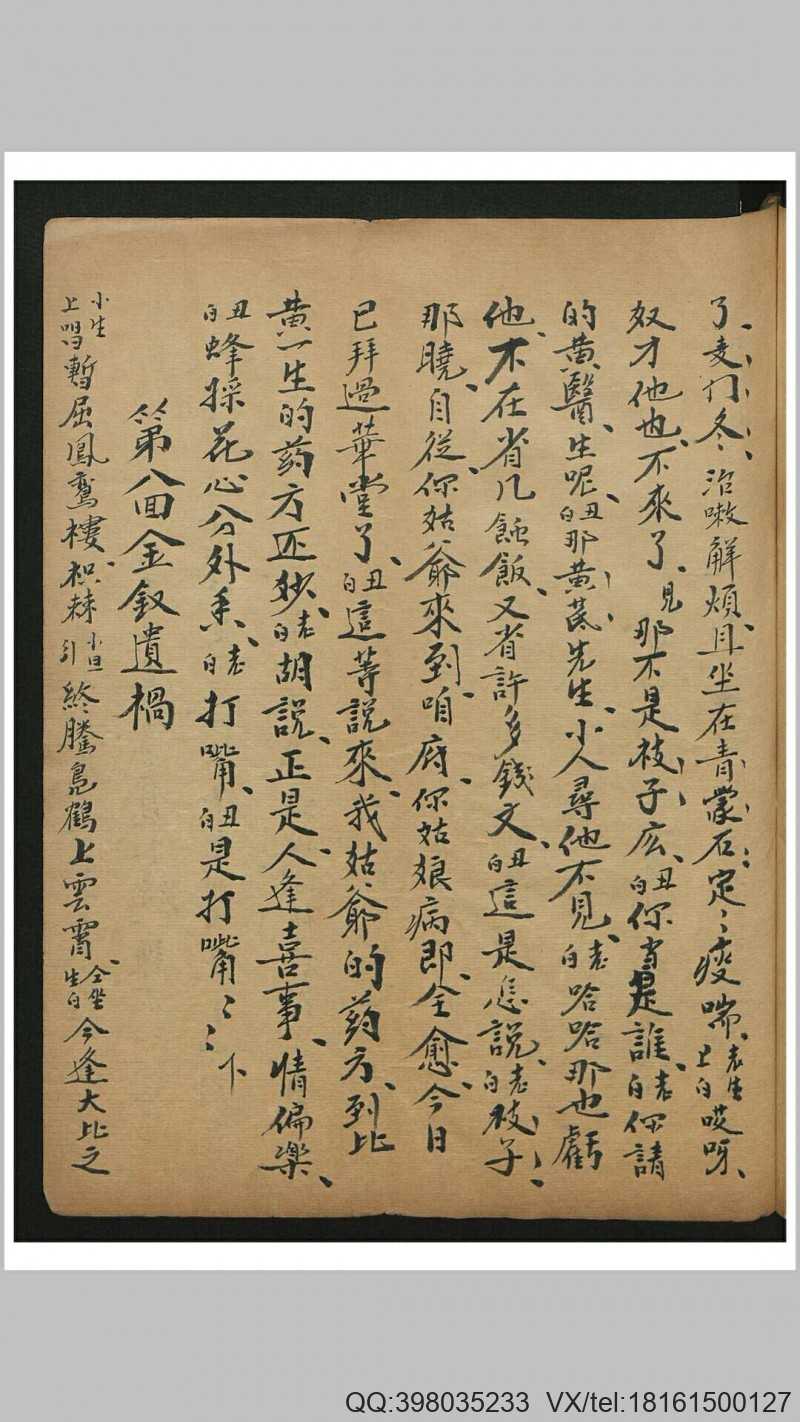 了、麦门冬、治嗽解煩、且坐在青蒙石、定〻痰喘、老生上白哎呀、
奴才他也不來了、見那不是枝子庅、丑白你当是誰、老白你請
的黄醫生呢、丑白那黄芪先生、小人尋他不見、老白哈哈那也虧
他、不在省几飩飯、又省許多錢文、丑白這是怎說、老白枝子、
那曉、自從你姑爺來到咱府、你姑娘病即全愈、今日
已拜過華堂了、丑白這等說來、我姑爺的药方、到比
黄一生的药方还妙、老白胡說、正是人逢喜事、情偏樂、
丑白蜂採花心分外香、老白打嘴、丑白是打嘴〻〻下
第八回金釵遺禍
小生上唱暫屈鳳鸞棲枳棘小旦引終騰鳧鶴上雲霄、仝坐生白今逢大比之
QQ:398035233 VX/tel:18161500127